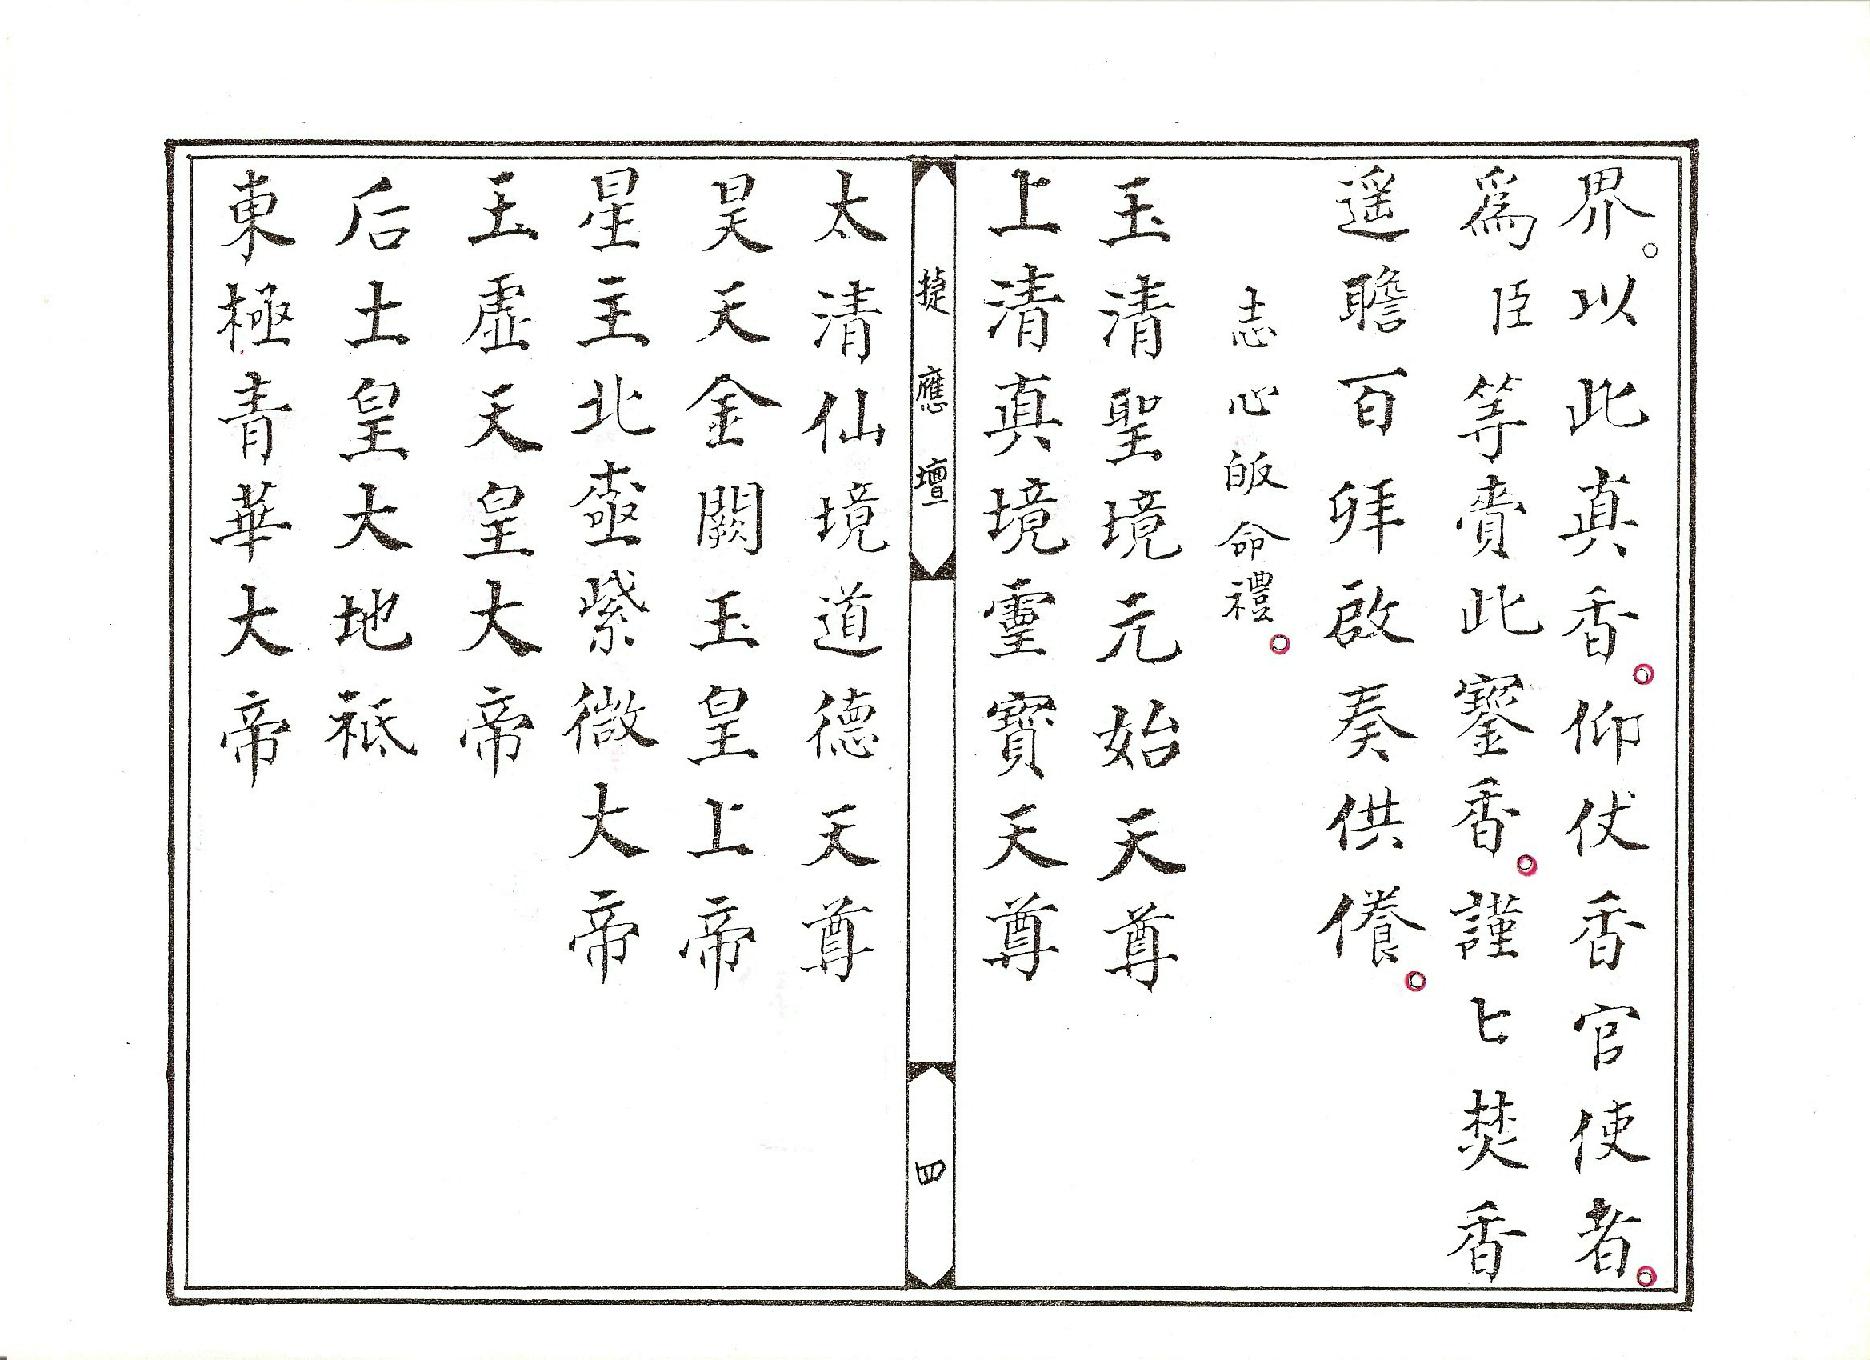 界。以此真香。仰仗香官使者。
爲臣等賫此寳香。謹匕焚香
遥瞻百拜啟奏供養。
志心皈命禮。
玉清聖境元始天尊
上清真境靈寳天尊
捷應壇
四
太清仙境道德天尊
昊天金闕玉皇上帝
星主北極紫微大帝
玉虛天皇大帝
后土皇大地祇
東極青華大帝